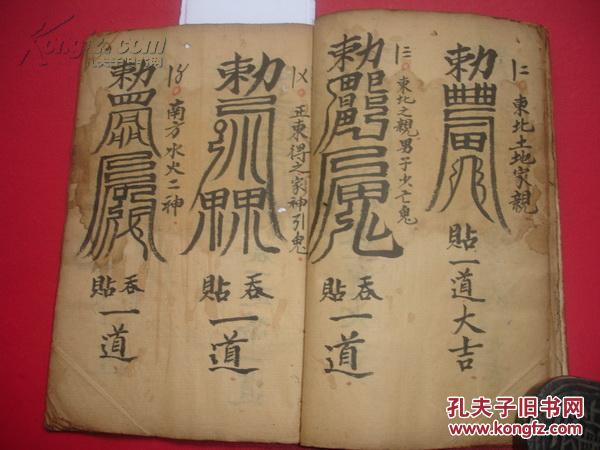 〡二 東北土地家親
勅
貼一道大吉
〡三 東北之親男子少亡鬼
勅
吞貼一道
〡〤 正東得之家神引鬼
勅
吞貼一道
〡〥 南方水火二神
勅
吞貼一道
Kongfz.com
孔夫子旧书网
孔夫子旧书网
www.kongfz.com